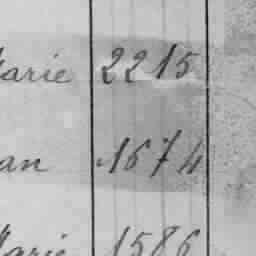 Marie 2215
an 1674
Marie 1586